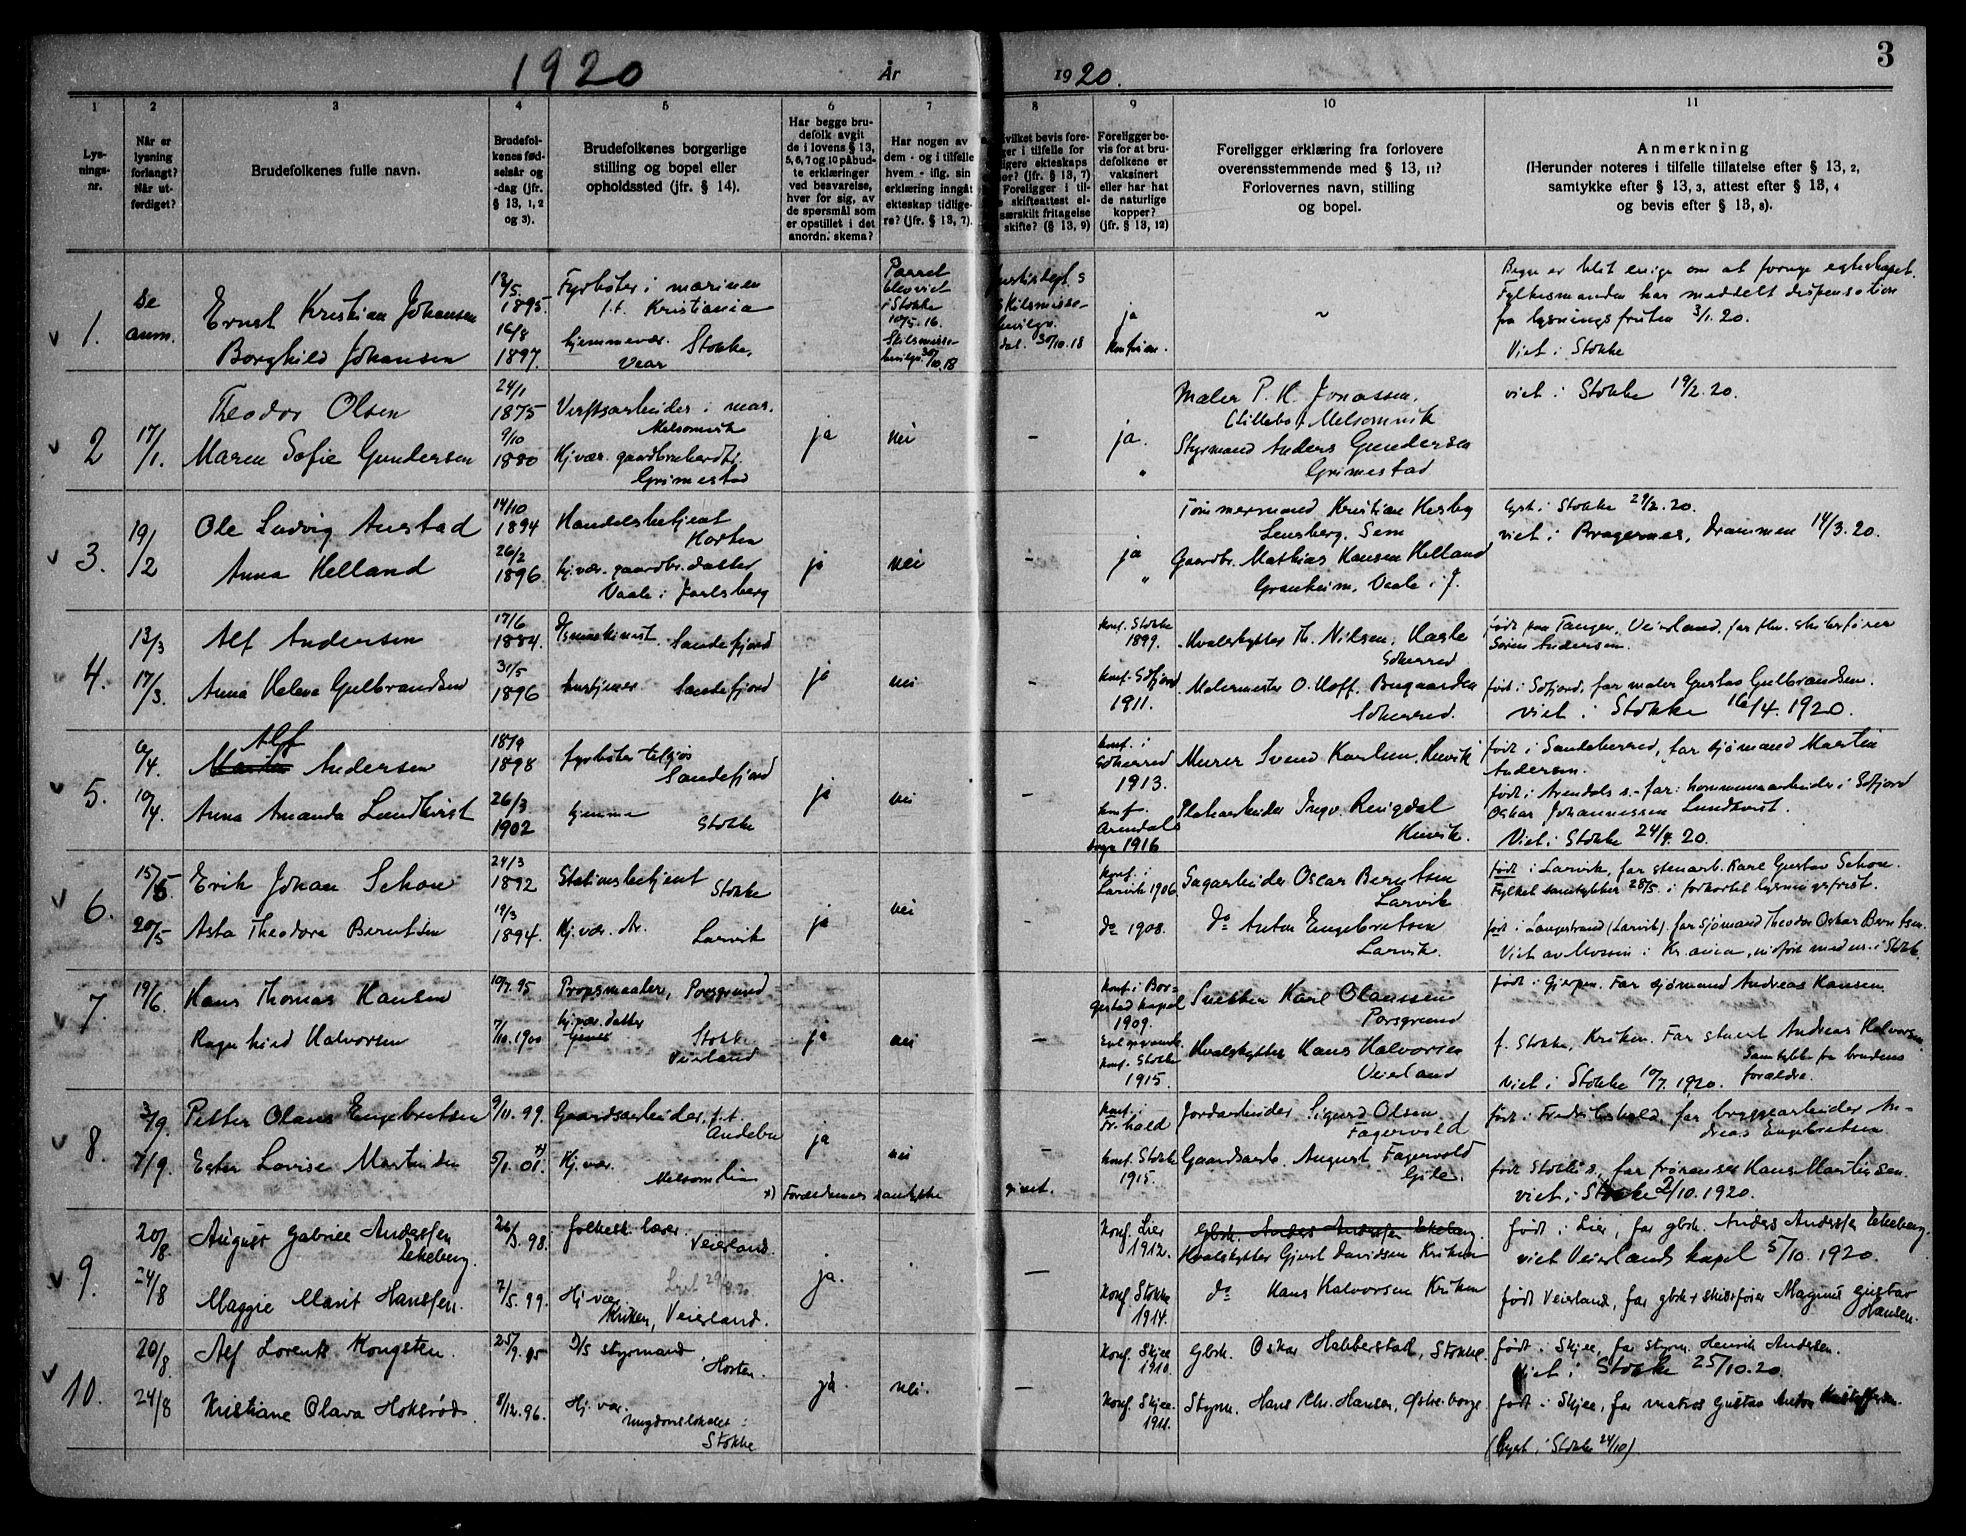 1920 År 1920. 3
1 2 3 4 5 6 7 8 9 10 11
Lys-
nings-
nr.
Når er
lysning
forlangt?
Når ut-
ferdiget?
Brudefolkenes fulle navn.
Brudefol-
kenes fød-
selsår og
-dag (jfr.
§ 13, 1, 2
og 3).
Brudefolkenes borgerlige
stilling og bopel eller
opholdssted (jfr. § 14).
Har begge bru-
defolk avgit
de i lovens § 13,
5, 6, 7 og 10 påbud-
te erklæringer
ved besvarelse,
hver for sig, av
de spørsmål som
er opstillet i det
anordn. skema?
Har nogen av
dem - og i tilfelle
hvem - iflg. sin
erklæring inngått
ekteskap tidlige-
re? (jfr. § 13, 7).
vilket bevis fore-
ger i tilfelle for
ligere ekteskaps
or? (jfr. § 13, 7)
Foreligger i til-
skifteattest el-
særskilt fritagelse
skifte? (§ 13, 9)
Foreligger be-
vis for at bru-
defolkene er
vaksinert
eller har hat
de naturlige
kopper?
(jfr. § 13, 12)
Foreligger erklæring fra forlovere
overensstemmende med § 13, 11?
Forlovernes navn, stilling
og bopel.
Anmerkning
(Herunder noteres i tilfelle tillatelse efter § 13, 2,
samtykke efter § 13, 3, attest efter § 13, 4
og bevis efter § 13, 8).
1.
se
anm.
Ernst Kristian Johansen
Borghild Johansen
12/5.
1895.
16/8
1897.
Fyrbøter i marinen
f.t. Kristiania
hjemmevær. Stokke,
Vear
Parret
blev viet
i Stokke
10/5. 16.
Skilsmisse-
bevilgn. 30/10.18
Skilsmisse-
bevilgn.
dat. 30/10.18
ja
Konfirm.
~
Begge er blit enige om at fornye egteskapet.
Fylkesmanden har meddelt dispensation
fra lysningsfristen 3/1. 20.
Viet i Stokke
2
17/1.
Theodor Olsen
Maren Sofie Gundersen
24/1
1875
9/10
1880
Verftsarbeider i mar.
Melsomvik
Hj.vær. gaardbruberdt.
Grimestad
ja
nei
-
ja.
"
Maler P. H. Jonassen,
(Lillebo) Melsomvik
Styrmand Anders Gundersen
Grimestad
viet i Stokke 19/2. 20.
3.
19/2
Ole Ludvig Austad
Anna Helland
14/10
1894
26/2
1896.
Handelsbetjent
Horten
hj.vær. gaardbr. datter
Vaale i Jarlsberg
ja
nei
-
ja
"
Tømmermand Kristian Hesby
Lensberg, Sem
Gaardbr. Mathias Hansen Helland
Granheim, Vaale i J.
lyst i Stokke 29/2. 20.
viet i Bragernes, Drammen 14/3. 20.
4.
13/3
17/3.
Alf Andersen
Anna Helene Gulbrandsen
17/6
1884.
31/5
1896
D/Smaskinist. Sandefjord
hustjener Sandefjord
ja
nei
-
Konf. Stokke
1899.
Konf. Sdfjord
1911.
Hvalskytter Th. Nilsen, Hasle
Sdherred
Malermester O. Hoff. Bugaarden
Sdherred.
født paa Tangen, Veierland, far fhv. skibsfører
Søren Andersen.
født i Sdfjord, far maler Gustav Gulbrandsen.
viet i Stokke 16/4. 1920.
5.
6/4.
10/4.
Alf
Andersen
Anna Amanda Lundkvist
18/9
1898
26/3
1902
fyrbøter tilsjøs
Sandefjord
hjemme
Stokke
ja
nei
-
Konf. i
Sdherred
1913.
Konf.
Arendals
sogn 1916
Murer Svend Karlsen, Huvik
Platearbeider Ingv. Ringdal
Huvik.
født i Sandeherred, far sjømand Martin
Andersen.
født i Arendals s.- far: kommunearbeider i Sdfjord
Oskar Johannessen Lundkvist.
Viet i Stokke 24/4. 20.
6.
15/5
20/5
Erik Johan Schou
Asta Theodora Berntsen
24/3
1892
19/3
1894.
Stationsbetjent
Stokke
Hj.vær. dr.
Larvik
ja
nei
-
Konf. i
Larvik 1906
do 1908.
Sagarbeider Oscar Berntsen
Larvik
do Anton Engebretsen
Larvik.
født i Larvik, far stenarb. Karl Gustav Schou.
Fylket samtykker 28/5. i forkortet lysningsfrist.
født i Langestrand (Larvik). far Sjømand Theodor Oskar Berntsen.
Viet av Mossin i Kr.ania, indført med nr. i Stokke.
7.
19/6
Hans Thomas Hansen
Ragnhild Halvorsen
10/7. 95
7/10. 1900
Propsmaaler, Porsgrund
hj.vær. datter
Stokke
Veierland
ja
nei
-
Konf. i Bor-
gestad kapel
1909.
Konf. Stokke
1915.
Snekker Karl Olaussen
Porsgrund
Hvalskytter Hans Halvorsen
Veierland
født i Gjerpen. Far sjømand Andreas Hansen
f. Stokke, Kriken. Far stuert Andreas Halvorsen.
Samtykke fra brudens
forældre.
viet i Stokke 10/7. 1920.
8.
3/9.
7/9.
Petter Olaus Engebretsen
Ester Lovise Martinsen
9/11. 99.
5/1. 01. *)
Gaardsarbeider, f.t.
Andebu
Hj.vær.
Melsomlien
ja
nei
-
*) Forældrenes samtykke givet.
Konf. i
Fr.hald
Konf. Stokke
1915.
Jordarbeider Sigurd Olsen
Fagervold
Gaardsarb. August Fagervold
Gile.
født i Fredrikshald, far bryggearbeider An-
dreas Engebretsen
født Stokke s., far trønenser Hans Martinsen.
viet i Stokke 2/10. 1920.
9.
20/8.
24/8
August Gabriel Anderssen
Ekeberg.
Maggie Marit Hanssen.
26/3. 98.
7/5. 99.
folkesk. lærer
Veierland.
Lyst 29/8.20.
Hj.vær.
Kriken, Veierland.
ja.
-
Konf. Lier
1912.
Konf. Stokke
1914.
Gbrk. Anders Anderssen Ekeberg.
Hvalskytter Gjert Davidsen Kriken
do Hans Halvorsen Kriken
født i Lier, far gbrk. Anders Anderssen Ekeberg.
viet Veierlands kapel 5/10. 1920.
født Veierland, far gbrk & skibsfører Magnus Gustav
Hansen.
10.
20/8.
24/8
Alf Lorents Kongsten.
Kristiane Olava Hoksrød.
25/9. 95
8/12. 96.
D/S styrmand
Horten.
Hj.vær.
Ungdomslokalet i
Stokke
ja.
nei.
-
Konf. Skjee
1910.
Konf. Skjee
1911.
Gbrk. Oskar Habberstad, Stokke.
Styrm. Hans Chr. Hansen, Østre borge.
født i Skjee, far styrm. Henrik Andersen.
Viet i Stokke 25/10. 20.
født i Skjee, far matros Gustav Anton Kristoffersen.
(Lyst i Stokke 24/10)